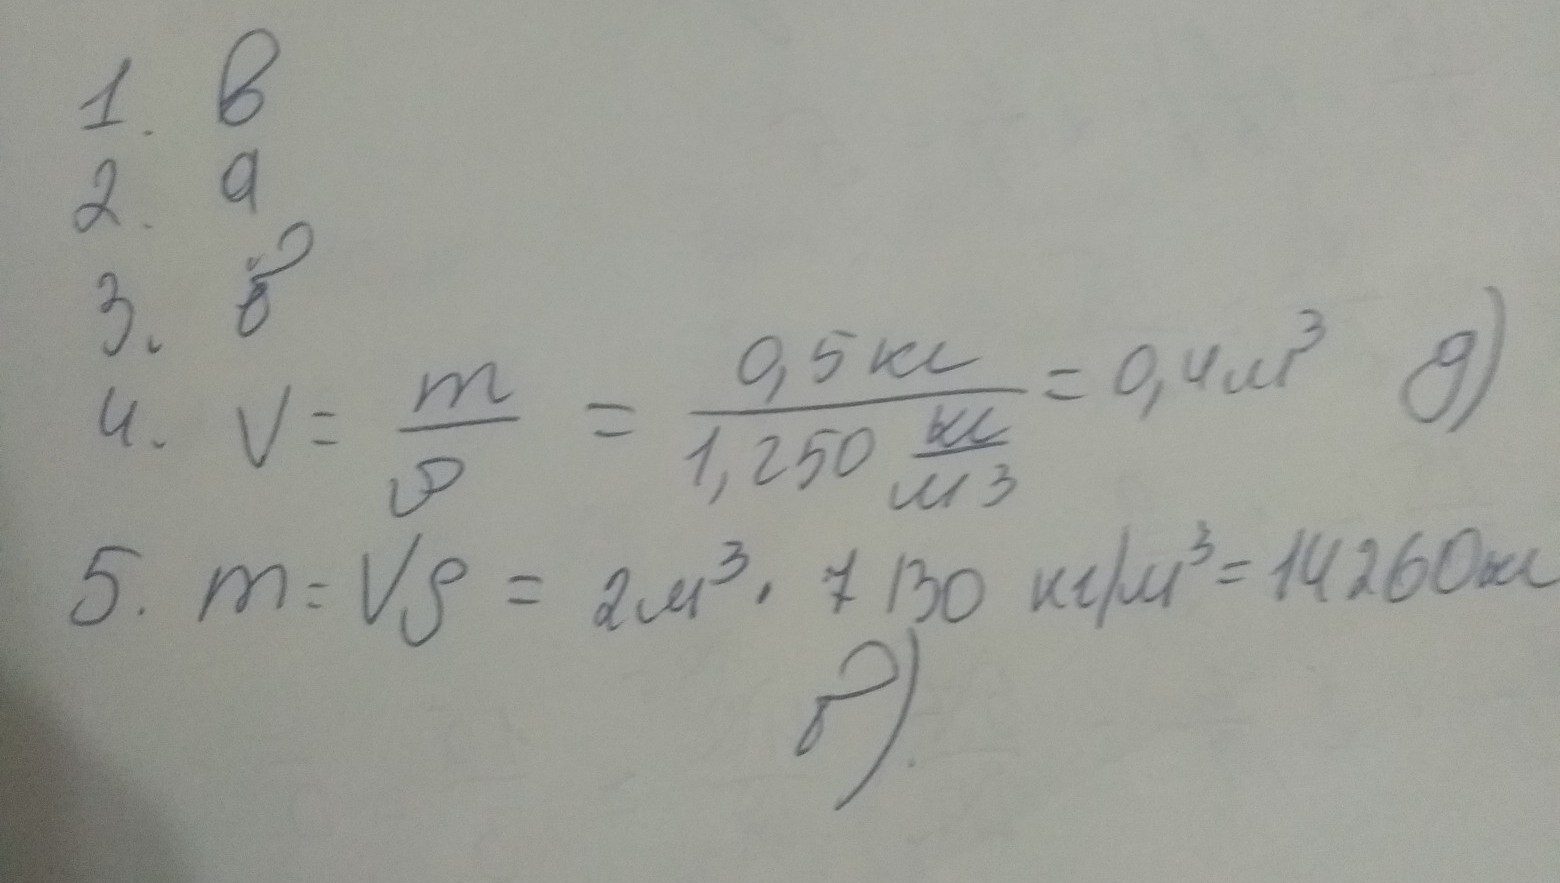 1. в
2. а
3. б
4. V = m/ρ = 0,5 кг / 1,250 кг/м³ = 0,4 м³ д)
5. m = Vρ = 2 м³ · 7 130 кг/м³ = 14 260 кг
б).